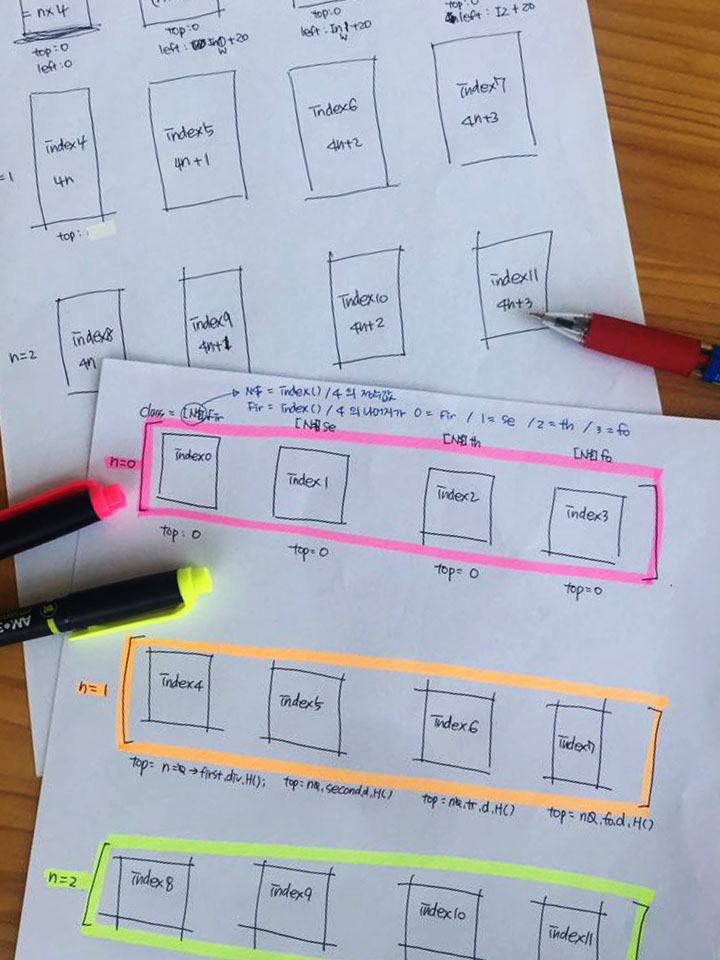 = n×4
top:0
left:0
top:0
left: +20
top:0
left: +20
top:0
left: I2 + 20
=1
index4
4n
index5
4n+1
index6
4n+2
index7
4n+3
top:
n=2
index8
4n
index9
4n+1
index10
4n+2
index11
4n+3
index() / 4 의
class =
Fir = index() / 4 의 나머지가 0 = Fir / 1 = se / 2 = th / 3 = fo
se
th
fo
n=0
index0
index1
index2
index3
top: 0
top= 0
top= 0
top=0
n=1
index4
index5
index6
index7
top= → first.div.H();
top= second.d.H()
top= tr.d.H()
top= fo.d.H()
n=2
index8
index9
index10
index11
AM